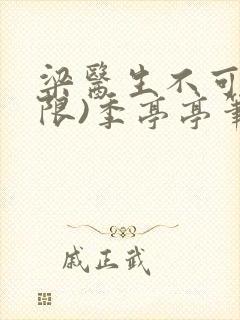 梁醫生不可
限)季亭亭筆
戚正武